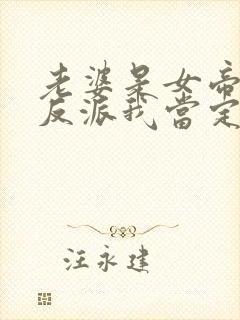 老婆是女帝
反派我當定
汪永建